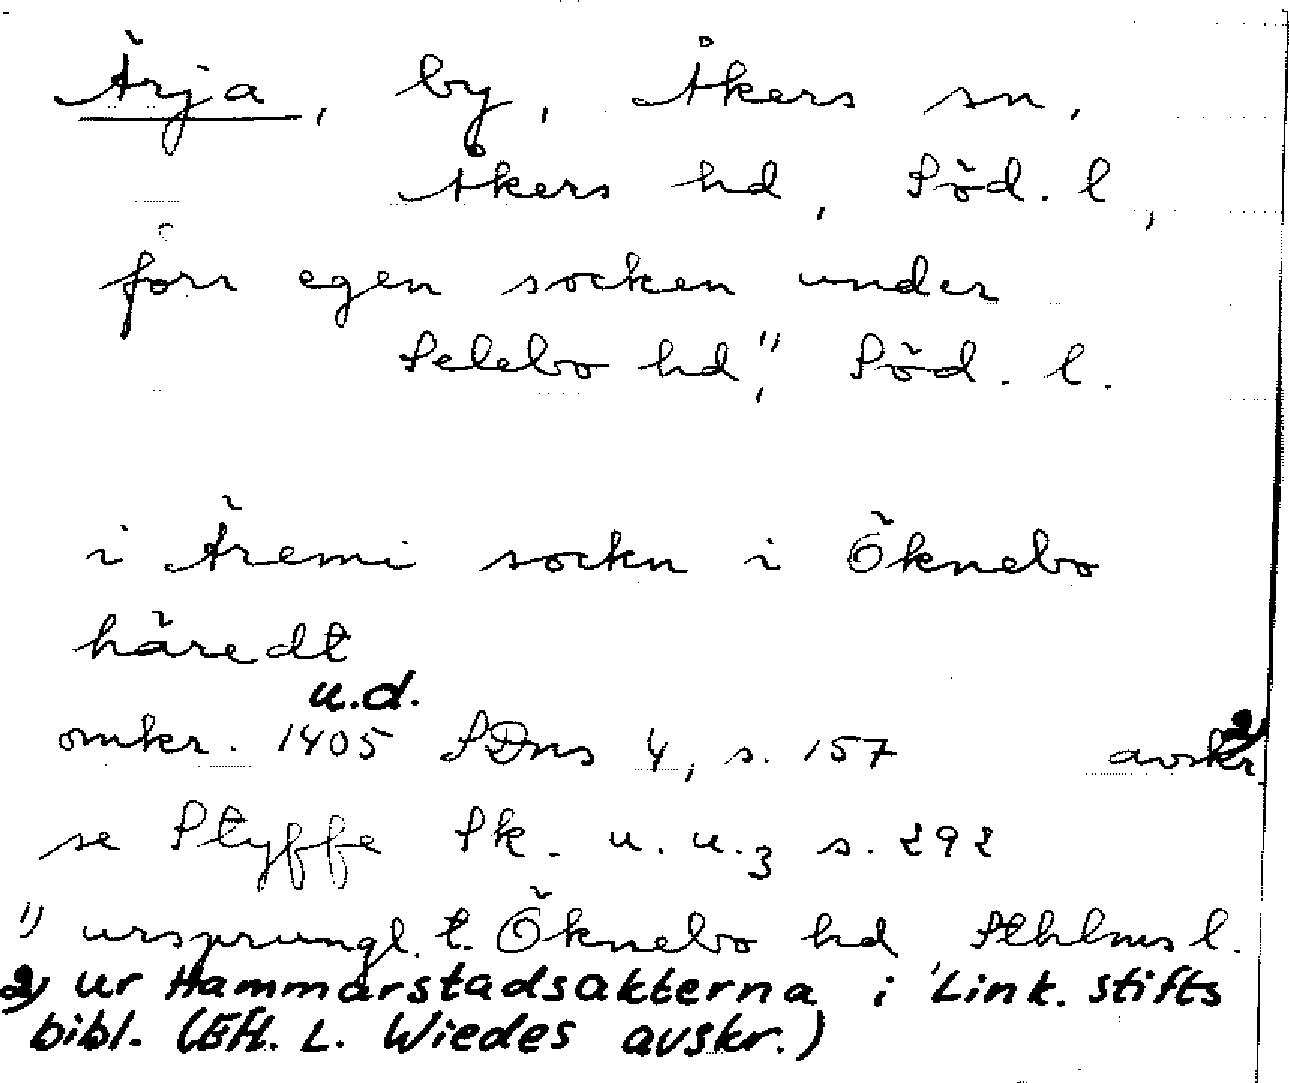 Ärja, by, Åkers sn,
Åkers hd, Söd. l,
förr egen socken under
Selebo hd,1) Söd. l.
i Äremi sockn i Öknebo
häredt
u.d.
omkr. 1405 SDns 4, s. 157 avskr.2)
se Styffe Sk. u. u.3 s. 292
1) ursprungl. t. Öknebo hd Sthlms l.
2) ur Hammarstadsakterna i Link. stifts
bibl. (Eft. L. Wiedes avskr.)